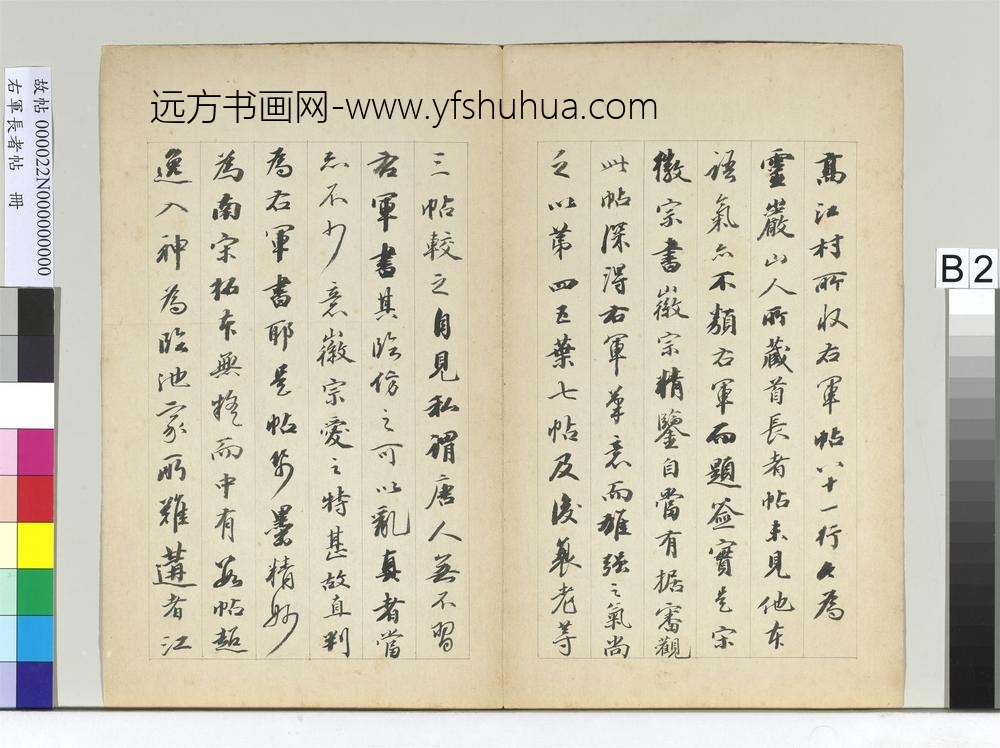 远方书画网-www.yfshuhua.com
高江村所收右軍帖八十一行久為
靈巖山人所藏首長者帖未見他本
語氣亦不類右軍而題簽實是宋
徽宗書徽宗精鑒自當有据審觀
此帖深得右軍筆意而雄强之氣尚
之以第四五葉七帖及後裴老等
三帖較之自見私謂唐人無不習
右軍書其臨仿之可以亂真者當
亦不少意徽宗愛之特甚故直判
為右軍書耶是帖紙墨精妙
為南宋拓本無疑而中有數帖超
逸入神為臨池家所難遘者江
故帖 000022N000000000
右軍長者帖 冊
B 2